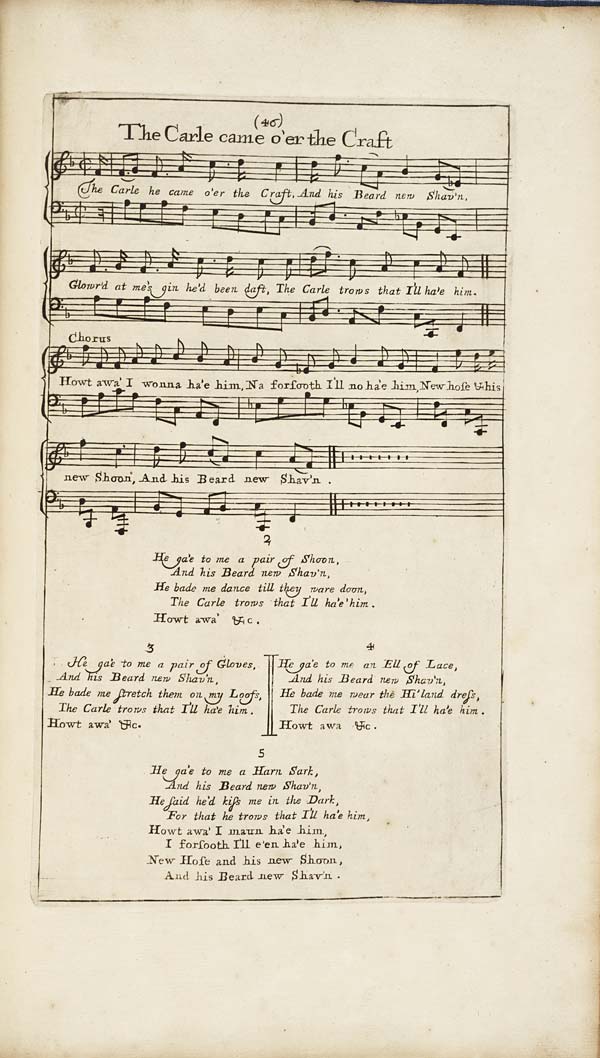 (46)
The Carle came o'er the Craft
The Carle he came o'er the Craft, And his Beard new Shav'n,
Glowr'd at me as gin he'd been daft, The Carle trows that I'll ha'e him.
Chorus
Howt awa' I wonna ha'e him, Na forſooth I'll no ha'e him, New hoſe & his
new Shoon, And his Beard new Shav'n .
2
He ga'e to me a pair of Shoon,
And his Beard new Shav'n,
He bade me dance till they ware doon,
The Carle trows that I'll ha'e him .
Howt awa' &c .
3
He ga'e to me a pair of Gloves,
And his Beard new Shav'n,
He bade me ſtretch them on my Loofs,
The Carle trows that I'll ha'e him .
Howt awa' &c.
4
He ga'e to me an Ell of Lace,
And his Beard new Shav'n,
He bade me wear the Hi'land dreſs,
The Carle trows that I'll ha'e him .
Howt awa &c .
5
He ga'e to me a Harn Sark,
And his Beard new Shav'n,
He ſaid he'd kiſs me in the Dark,
For that he trows that I'll ha'e him,
Howt awa' I maun ha'e him,
I forſooth I'll e'en ha'e him,
New Hoſe and his new Shoon,
And his Beard new Shav'n .